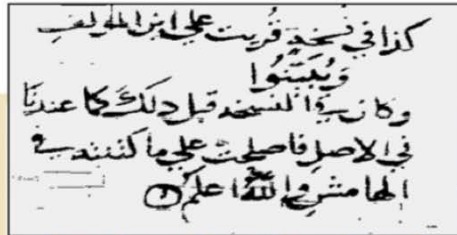 كذا في نسخة قُريت علي ابن المولف
وَيُبَيِّنُوا
وكان في النسخه قبل ذلك كما عندنَا
في الاصل فاصلحت علي ما كتبته في
الهامش والله اعلم